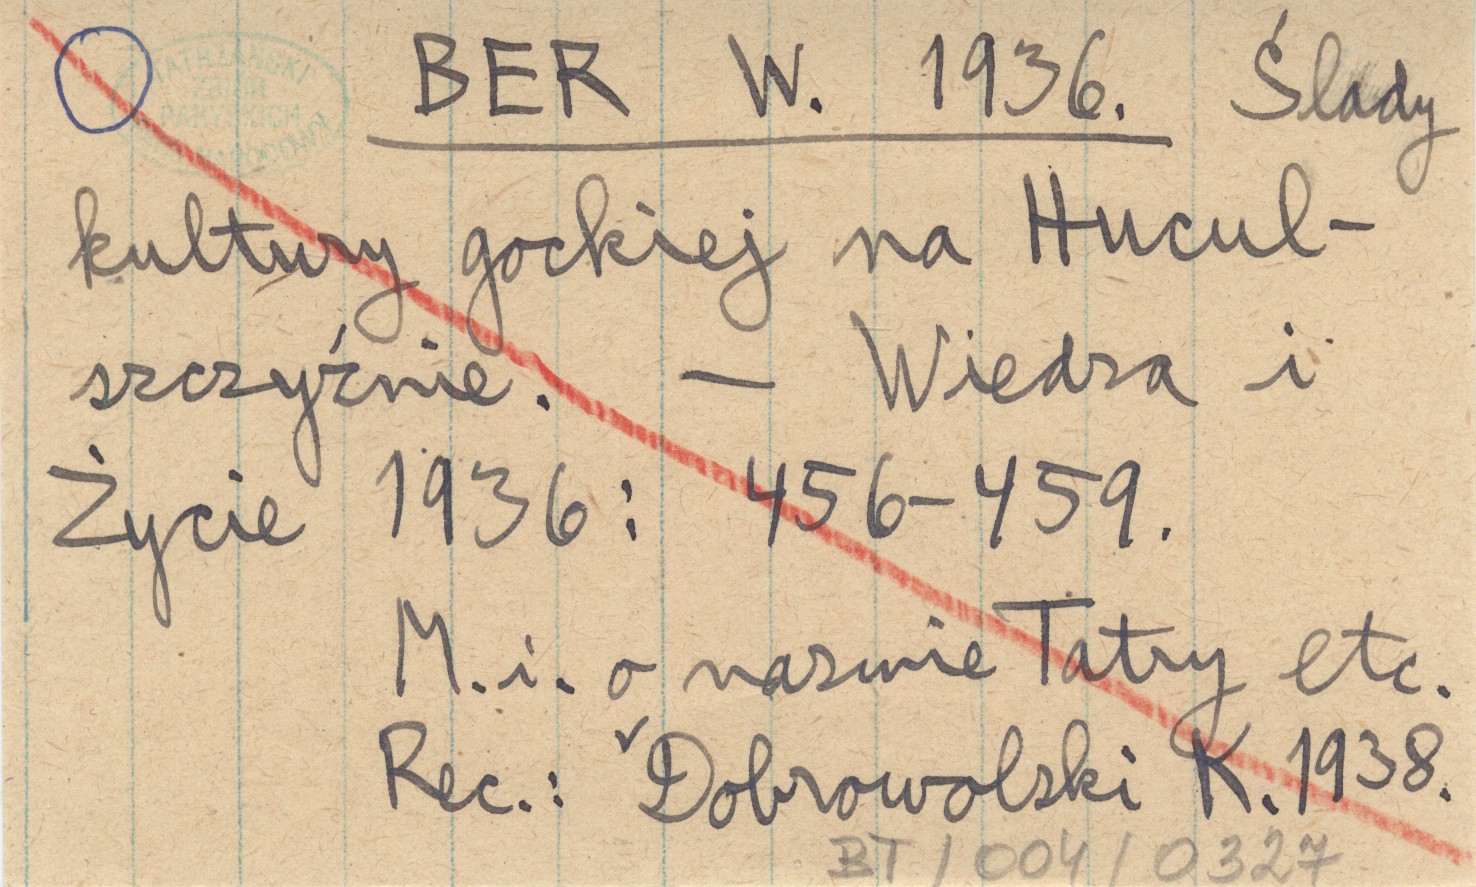 BER W. 1936. Ślady
kultury gockiej na Hucul-
szczyźnie. — Wiedza i
Życie 1936: 456-459.
M.i. o nazwie Tatry etc.
Rec.: ᵛDobrowolski K. 1938.
BT/004/0327
TATRZAŃSKI
ZBIÓR
PARYSKICH